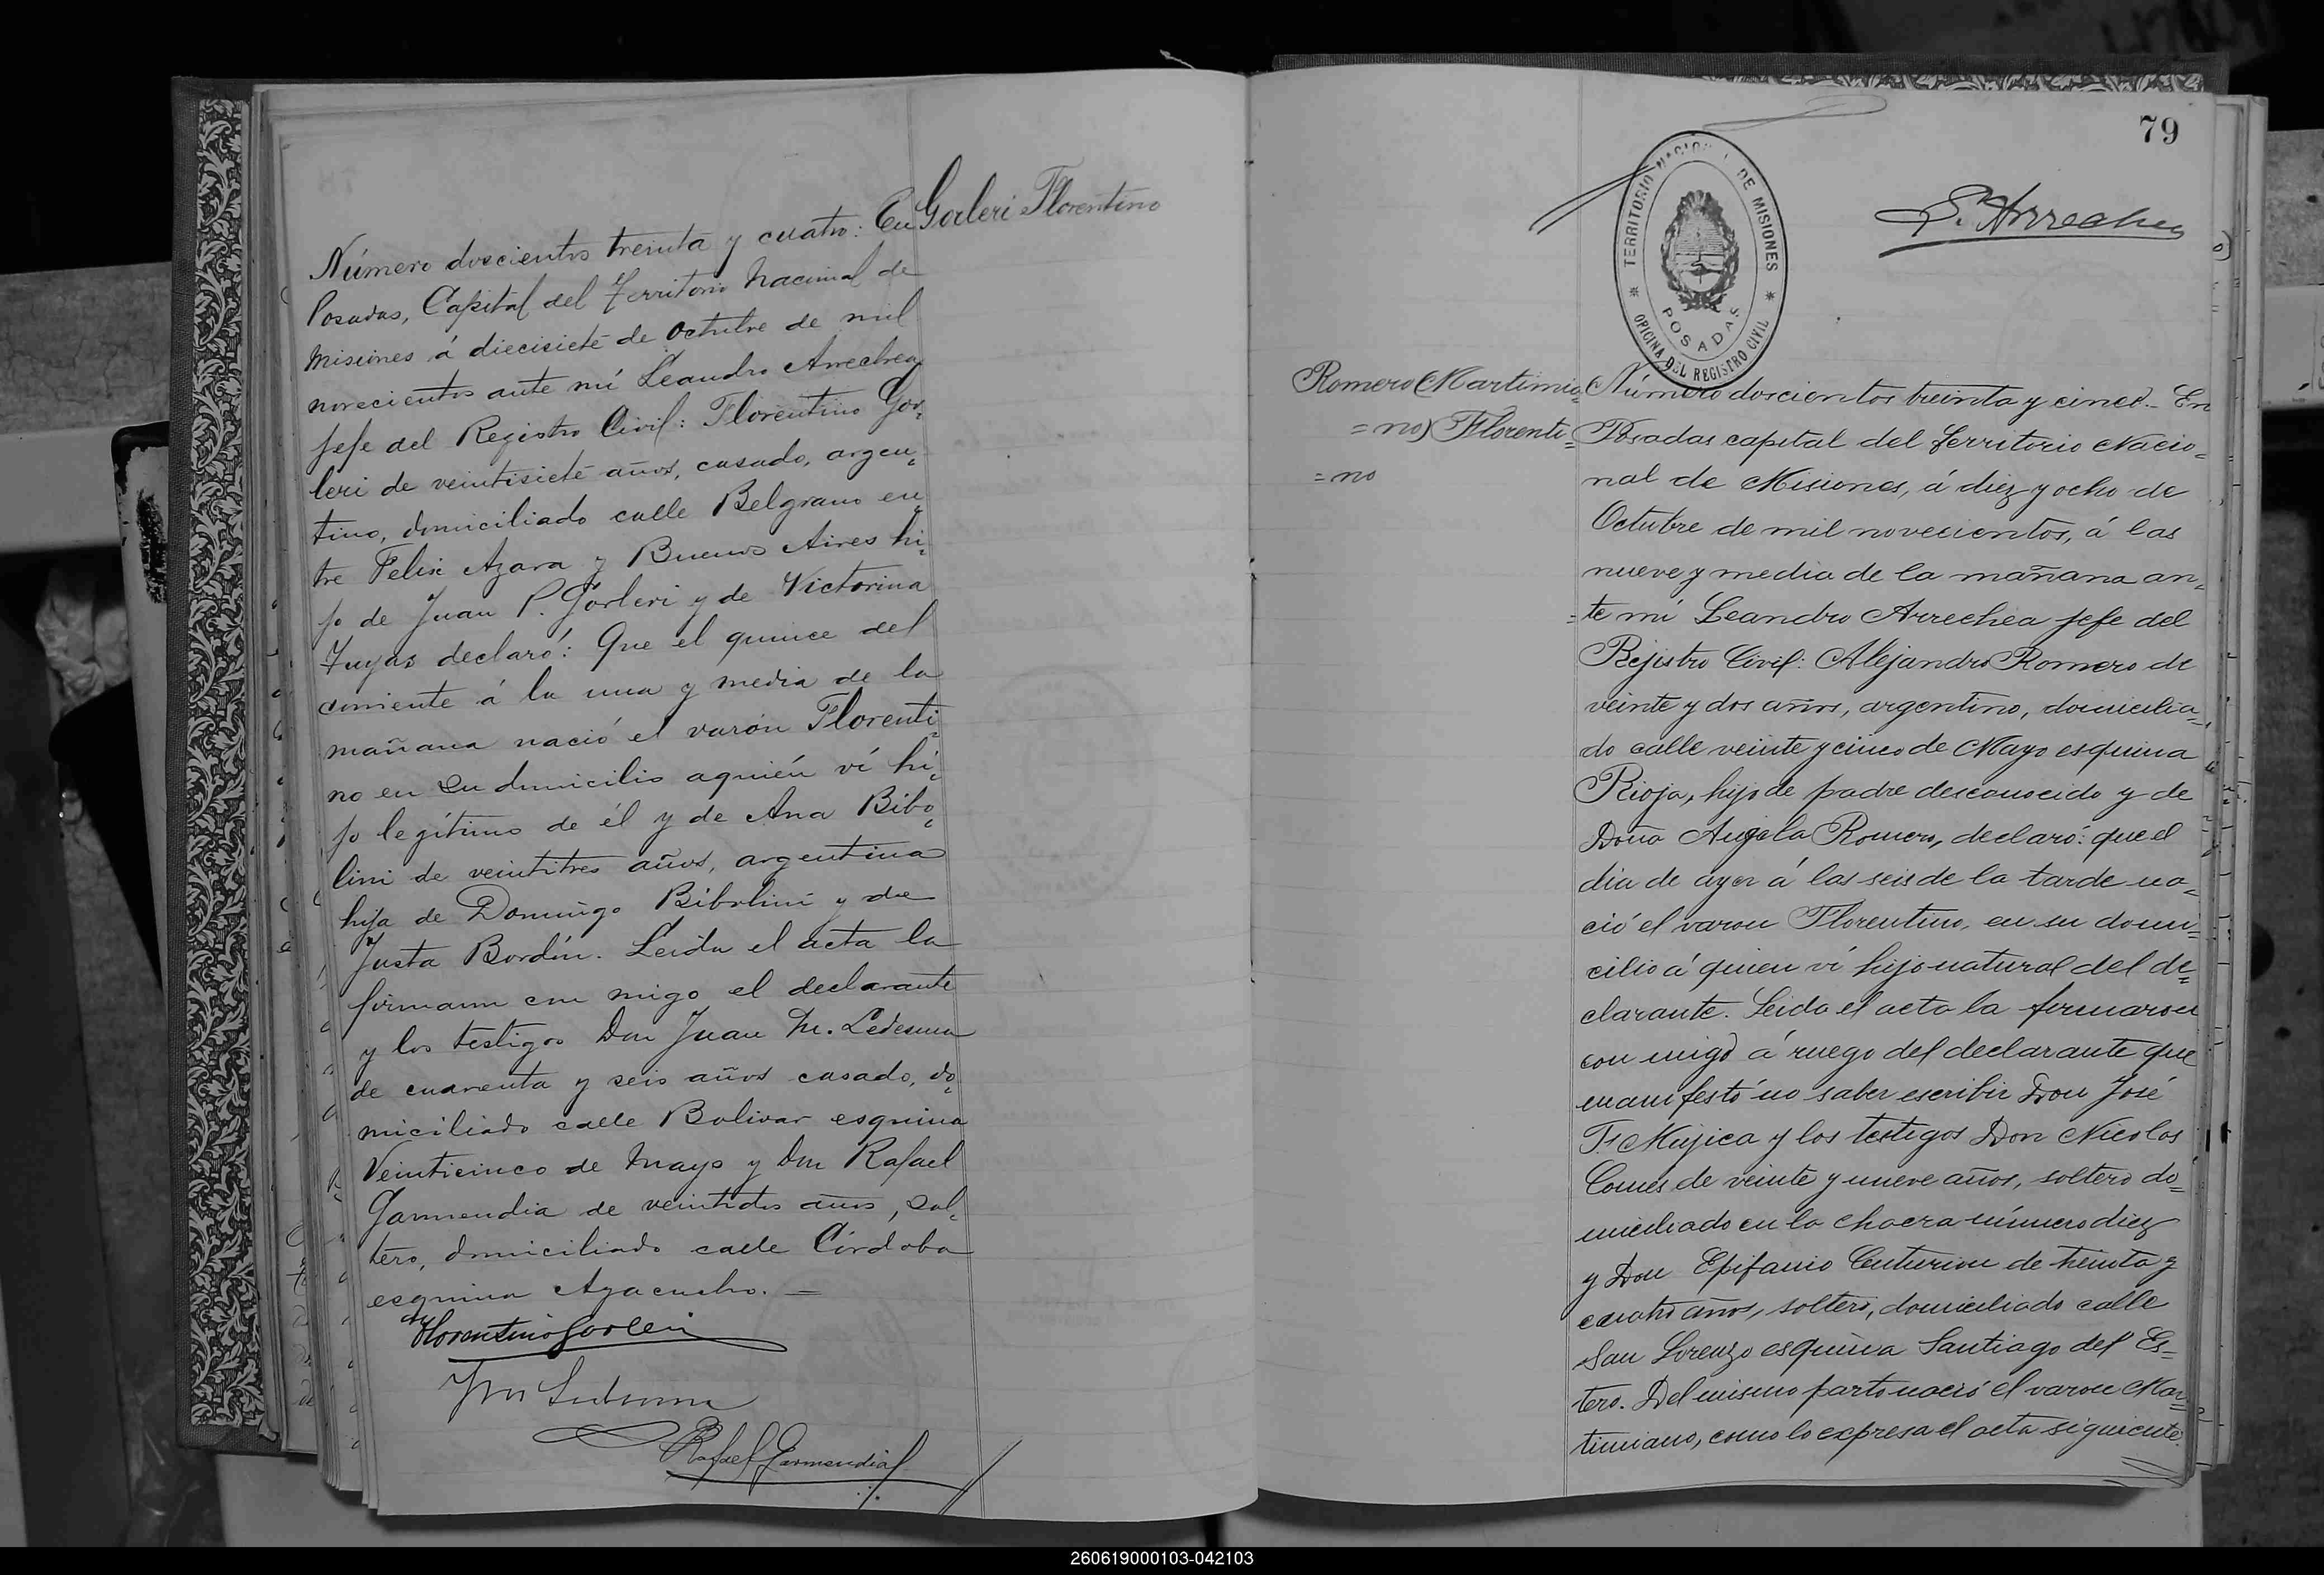 Gorleri Florentino
Número doscientos treinta y cuatro: En
Posadas, Capital del Territorio Nacional de
Misiones á diecisiete de Octubre de mil
novecientos ante mí Leandro Arrechea
Jefe del Registro Civil: Florentino Gor=
leri de veintisiete años, casado, argen=
tino, domiciliado calle Belgrano en=
tre Felix Azara y Buenos Aires hi=
jo de Juan P. Gorleri y de Victorina
declaró: Que el quince del
corriente á la una y media de la
mañana nació el varón Florenti=
no en su domicilio aquién ví hi=
jo legítimo de él y de Ana Bibo=
lini de veintitres años, argentina
hija de Domingo Bibolini y de
Justa Bordín. Leida el acta la
firmaron con migo el declarante
y los testigos Don Juan M. Ledesma
de cuarenta y seis años casado, do=
miciliado calle Bolivar esquina
Veinticinco de Mayo y Don Rafael
Garmendia de veintidos años, sol=
tero, domiciliado calle Córdoba
esquina Ayacucho. —
Florentino Gorleri
Rafael Garmendia
79
TERRITORIO NACIONAL DE MISIONES
OFICINA DEL REGISTRO CIVIL
POSADAS
L. Arrechea
Romero (Martimia=
=no) Florenti=
=no
Número doscientos treinta y cinco.- En
Posadas capital del Territorio Nacio=
nal de Misiones, á diez y ocho de
Octubre de mil novecientos, á las
nueve y media de la mañana an=
=te mi Leandro Arrechea Jefe del
Rejistro Civil: Alejandro Romero de
veinte y dos años, argentino, domicilia=
do calle veinte y cinco de Mayo esquina
Rioja, hijo de padre desconocido y de
Doña Angela Romero, declaró: que el
dia de ayer á las seis de la tarde na=
ció el varon Florentino, en su domi=
cilio á quien ví hijo natural del de=
clarante. Leida el acta la firmaron
con migo á ruego del declarante que
manifestó no saber escribir Don José
T. Mujica y los testigos Don Nicolas
Comes de veinte y nueve años, soltero do=
miciliado en la chacra número diez
y Don Epifanio Centurion de treinta y
cuatro años, soltero, domiciliado calle
San Lorenzo esquina Santiago del Es=
tero. Del mismo parto nació el varon Mar=
timiano, como lo expresa el acta siguiente.
260619000103-042103